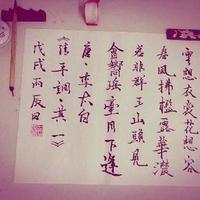 雲想衣裳花想容
春風拂檻露華濃
若非群玉山頭見
會向瑤臺月下逢
唐·李太白
《清平調·其一》
戊戌丙辰日